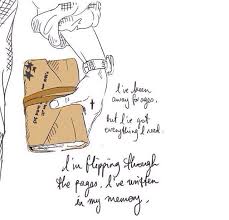 I've been
away for ages,
but I've got
everything I need.
I'm flipping through
the pages, I've written
in my memory.